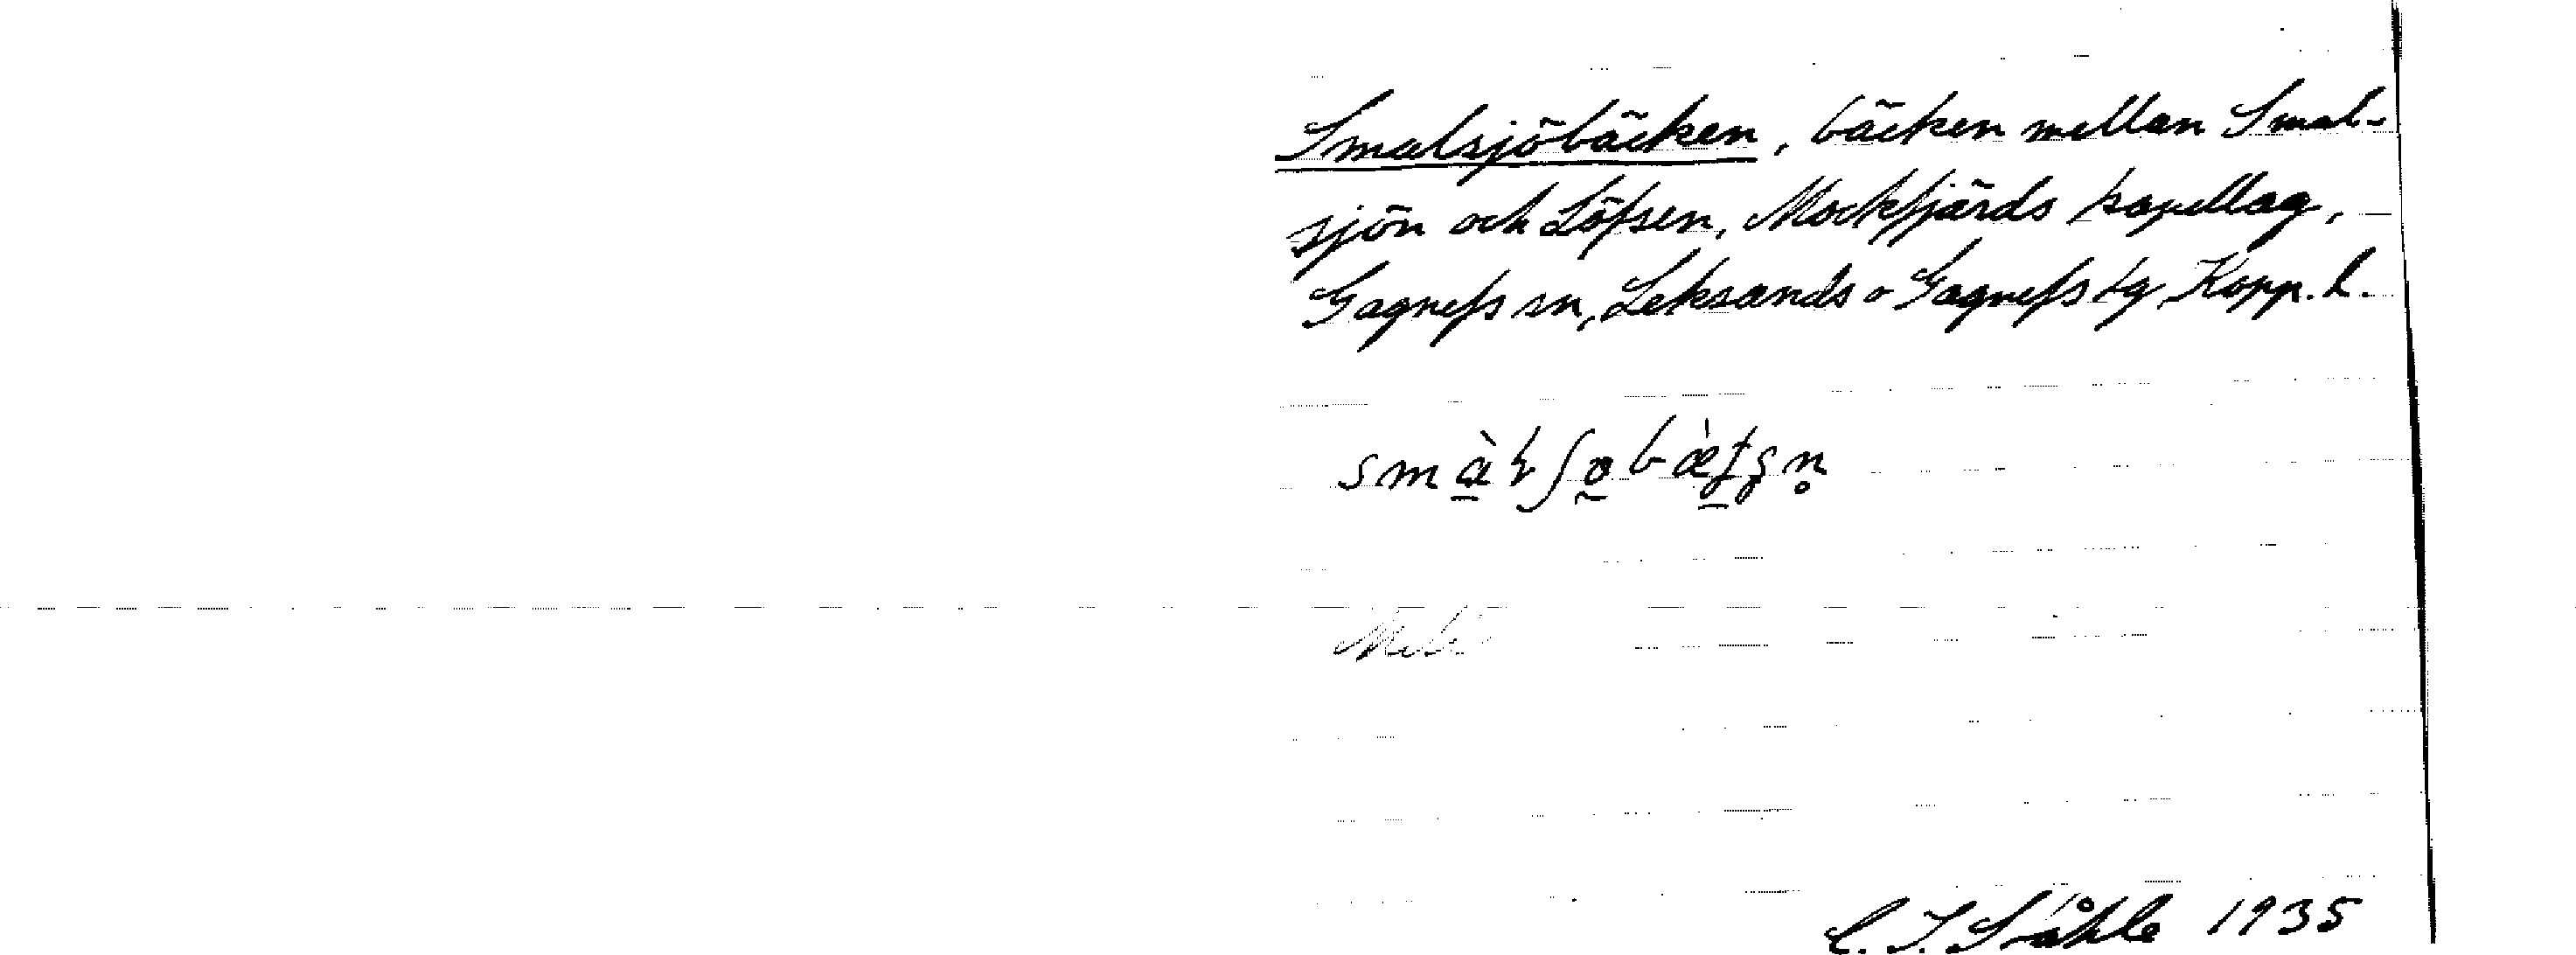 Smalsjöbäcken, bäcken mellan Smal-
sjön och Löfsen, Mockfjärds kapellag,
Gagnefs sn, Leksands o Gagnefs tg Kopp. l.
C. I. Ståhle 1935